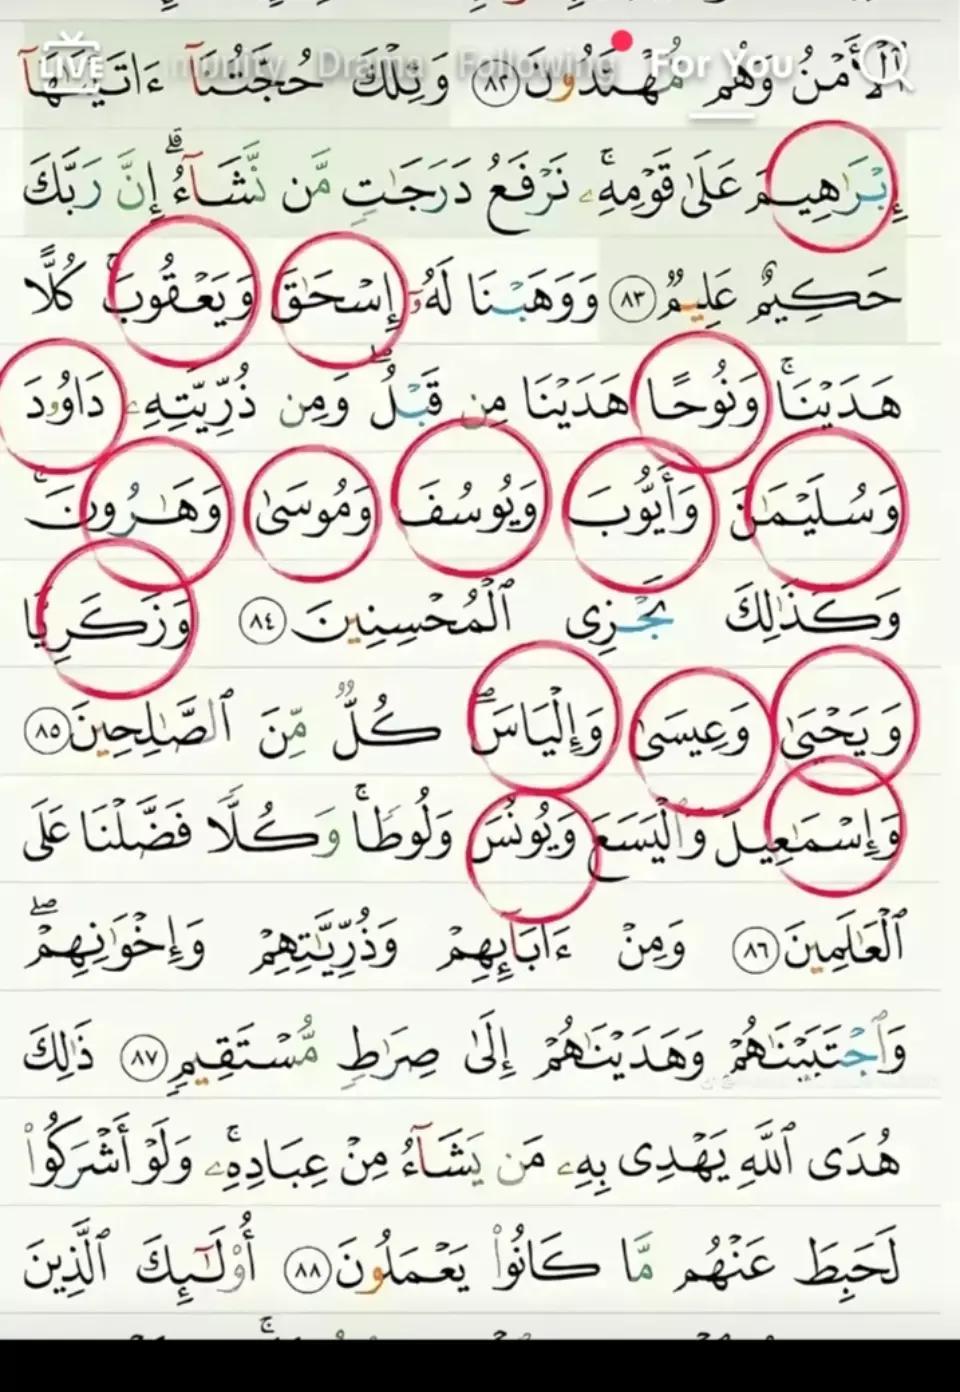 LIVE
Drama
Following
For You
ٱلْأَمْنُ وَهُم مُّهْتَدُونَ ٨٢ وَتِلْكَ حُجَّتُنَآ ءَاتَيْنَٰهَآ
إِبْرَٰهِيمَ عَلَىٰ قَوْمِهِۦ ۚ نَرْفَعُ دَرَجَٰتٍ مَّن نَّشَآءُ ۗ إِنَّ رَبَّكَ
حَكِيمٌ عَلِيمٌ ٨٣ وَوَهَبْنَا لَهُۥٓ إِسْحَٰقَ وَيَعْقُوبَ ۚ كُلًّا
هَدَيْنَا ۚ وَنُوحًا هَدَيْنَا مِن قَبْلُ ۖ وَمِن ذُرِّيَّتِهِۦ دَاوُۥدَ
وَسُلَيْمَٰنَ وَأَيُّوبَ وَيُوسُفَ وَمُوسَىٰ وَهَٰرُونَ ۚ
وَكَذَٰلِكَ نَجْزِى ٱلْمُحْسِنِينَ ٨٤ وَزَكَرِيَّا
وَيَحْيَىٰ وَعِيسَىٰ وَإِلْيَاسَ ۖ كُلٌّ مِّنَ ٱلصَّٰلِحِينَ ٨٥
وَإِسْمَٰعِيلَ وَٱلْيَسَعَ وَيُونُسَ وَلُوطًا ۚ وَكُلًّا فَضَّلْنَا عَلَى
ٱلْعَٰلَمِينَ ٨٦ وَمِنْ ءَابَآئِهِمْ وَذُرِّيَّٰتِهِمْ وَإِخْوَٰنِهِمْ ۖ
وَٱجْتَبَيْنَٰهُمْ وَهَدَيْنَٰهُمْ إِلَىٰ صِرَٰطٍ مُّسْتَقِيمٍ ٨٧ ذَٰلِكَ
هُدَى ٱللَّهِ يَهْدِى بِهِۦ مَن يَشَآءُ مِنْ عِبَادِهِۦ ۚ وَلَوْ أَشْرَكُوا۟
لَحَبِطَ عَنْهُم مَّا كَانُوا۟ يَعْمَلُونَ ٨٨ أُو۟لَٰٓئِكَ ٱلَّذِينَ